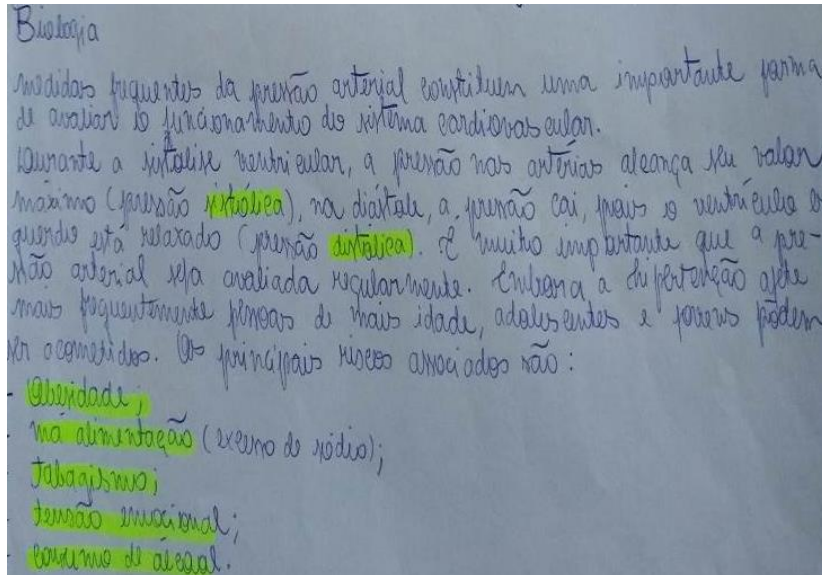 Biologia
medidas frequentes da pressão arterial constituem uma importante forma
de avaliar o funcionamento do sistema cardiovascular.
Durante a sístolise ventricular, a pressão nas artérias alcança seu valor
máximo (pressão sistólica), na diástole, a pressão cai, pois o ventrículo es
querdo está relaxado (pressão distólica). É muito importante que a pre-
são arterial seja avaliada regularmente. Embora a hipertenção afete
mais frequentemente pessoas de mais idade, adolescentes e jovens podem
ser acometidos. Os principais riscos associados são:
- Obesidade;
- má alimentação (excesso de sódio);
- Tabagismo;
- tensão emocional;
- consumo de álcool.